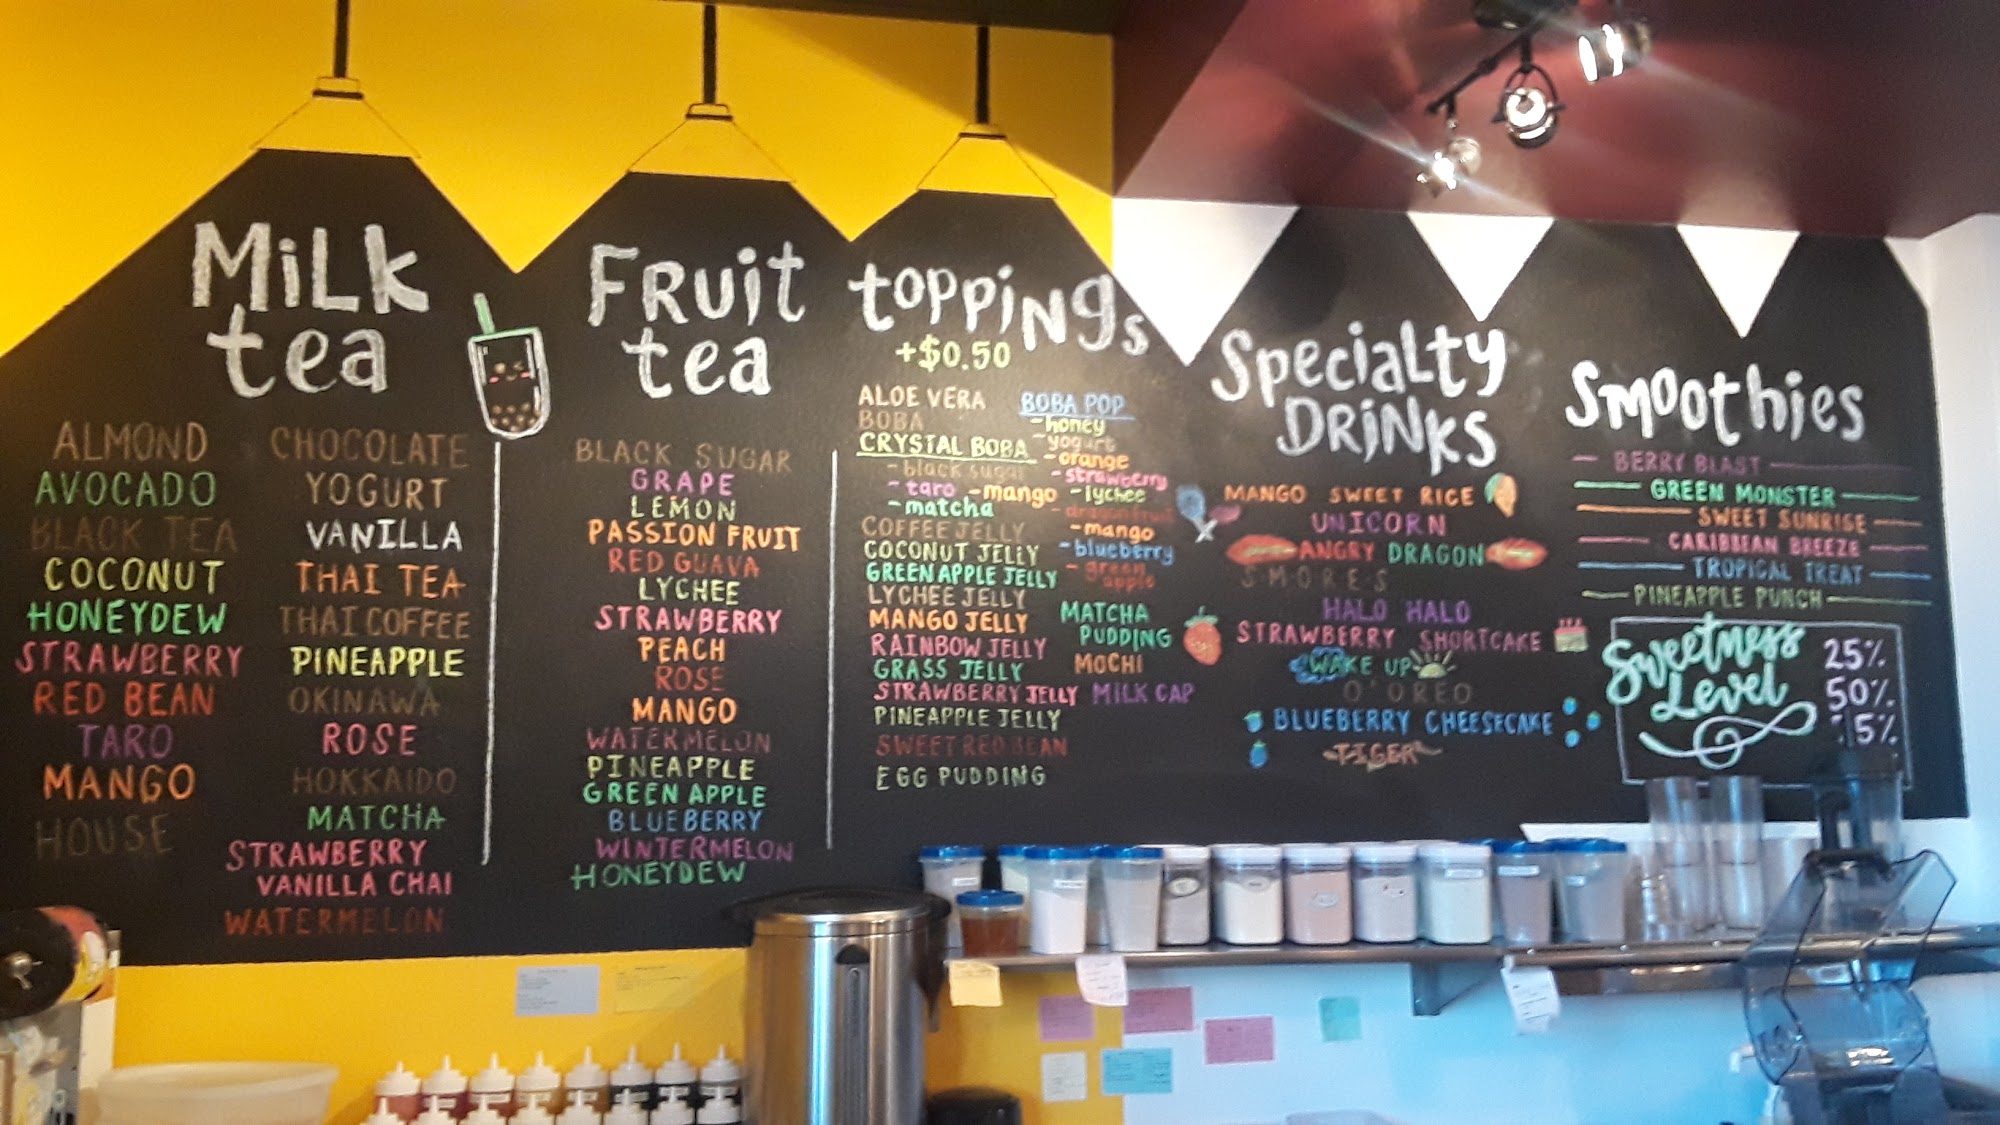 Milk
tea
ALMOND
AVOCADO
BLACK TEA
COCONUT
HONEYDEW
STRAWBERRY
RED BEAN
TARO
MANGO
HOUSE
CHOCOLATE
YOGURT
VANILLA
THAI TEA
THAI COFFEE
PINEAPPLE
OKINAWA
ROSE
HOKKAIDO
MATCHA
STRAWBERRY
VANILLA CHAI
WATERMELON
FRUIT
tea
BLACK SUGAR
GRAPE
LEMON
PASSION FRUIT
RED GUAVA
LYCHEE
STRAWBERRY
PEACH
ROSE
MANGO
WATERMELON
PINEAPPLE
GREEN APPLE
BLUEBERRY
WINTERMELON
HONEYDEW
toppings
+$0.50
ALOE VERA
BOBA
CRYSTAL BOBA
-black sugar
-taro -mango
-matcha
COFFEE JELLY
COCONUT JELLY
GREEN APPLE JELLY
LYCHEE JELLY
MANGO JELLY
RAINBOW JELLY
GRASS JELLY
STRAWBERRY JELLY
PINEAPPLE JELLY
SWEET RED BEAN
EGG PUDDING
BOBA POP
-honey
-yogurt
-orange
-strawberry
-lychee
-dragonfruit
-mango
-blueberry
-green
apple
MATCHA
PUDDING
MOCHI
MILK CAP
Specialty
DRINKS
MANGO SWEET RICE
UNICORN
ANGRY DRAGON
S'MORES
HALO HALO
STRAWBERRY SHORTCAKE
WAKE UP
O'OREO
BLUEBERRY CHEESECAKE
TIGER
Smoothies
BERRY BLAST
GREEN MONSTER
SWEET SUNRISE
CARIBBEAN BREEZE
TROPICAL TREAT
PINEAPPLE PUNCH
Sweetness
Level
25%
50%
5%